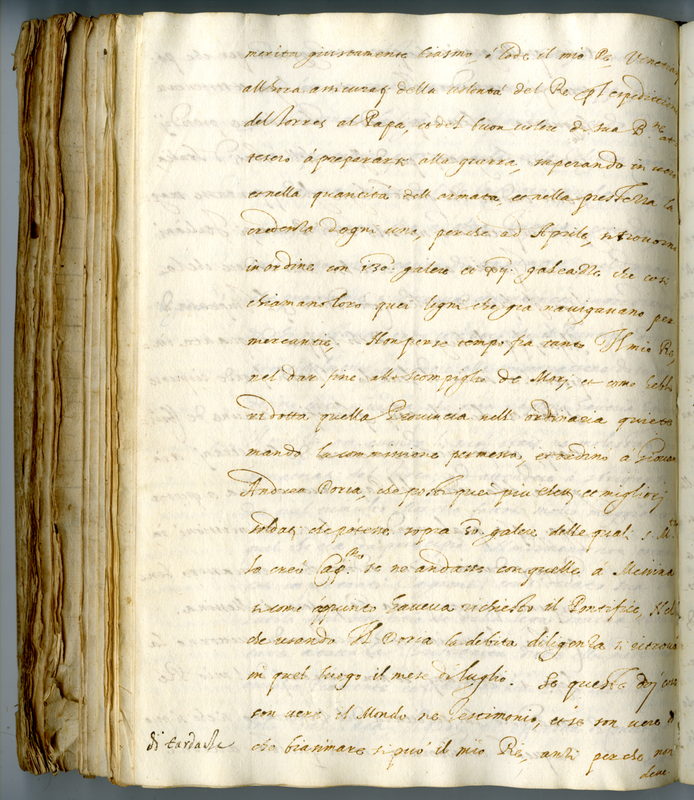 merita giustamente biasmo, ò lode il mio Re, Venetiani
all'hora assicurati della volontà del Re p l'espeditione
del Torres al Papa, et del buon volere di sua B.ne at
tesero à prepararsi alla guerra, superando in vero
et nella quantità dell'armata, et nella prestezza la
credenza d'ogni uno, perche ad Aprile, si trovorno
in ordine con 130. galere et galeazze che cosi
chiamano loro quei legni che già navigavano per
mercantie, Non perse tempo fra tanto Il mio Re,
nel dar fine allo scompiglio de Mori, et como hebbe
ridotta quella Provincia nell'ordinaria quiete
mandò la commissione permessa, et ordinò à Giovan
Andrea Doria, che posti quei più eletti et migliori
soldati che potesse sopra 50 galere delle quali S. M.tà
lo creò Cap.no se ne andasse con quelle à Messina
si come appunto haveva richiesto il Pontefice, Il
che usando Il Doria la debita diligenza si ritrovò
in quel luogo il mese di luglio. Se queste dej cose
son vere il Mondo ne Testimonio, et se son vere di
che biasimare si può il mio Re, anzi perche non
deve
di tardasse